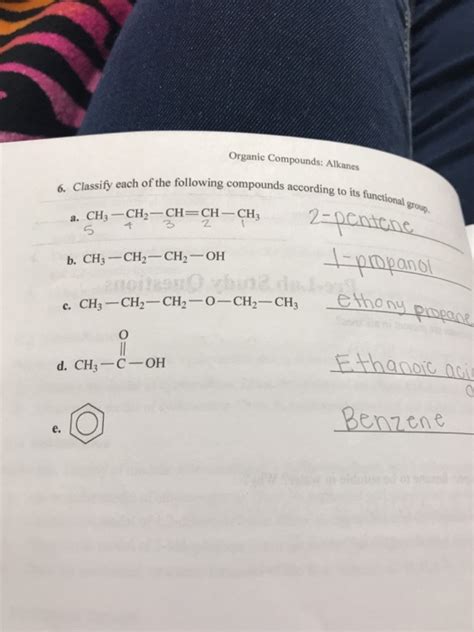 Organic Compounds: Alkanes
6. Classify each of the following compounds according to its functional group.
a. CH₃—CH₂—CH=CH—CH₃ 2-pentene
5 4 3 2 1
b. CH₃—CH₂—CH₂—OH 1-propanol
c. CH₃—CH₂—CH₂—O—CH₂—CH₃ ethony propane
O
||
d. CH₃—C—OH Ethanoic aci
e. Benzene